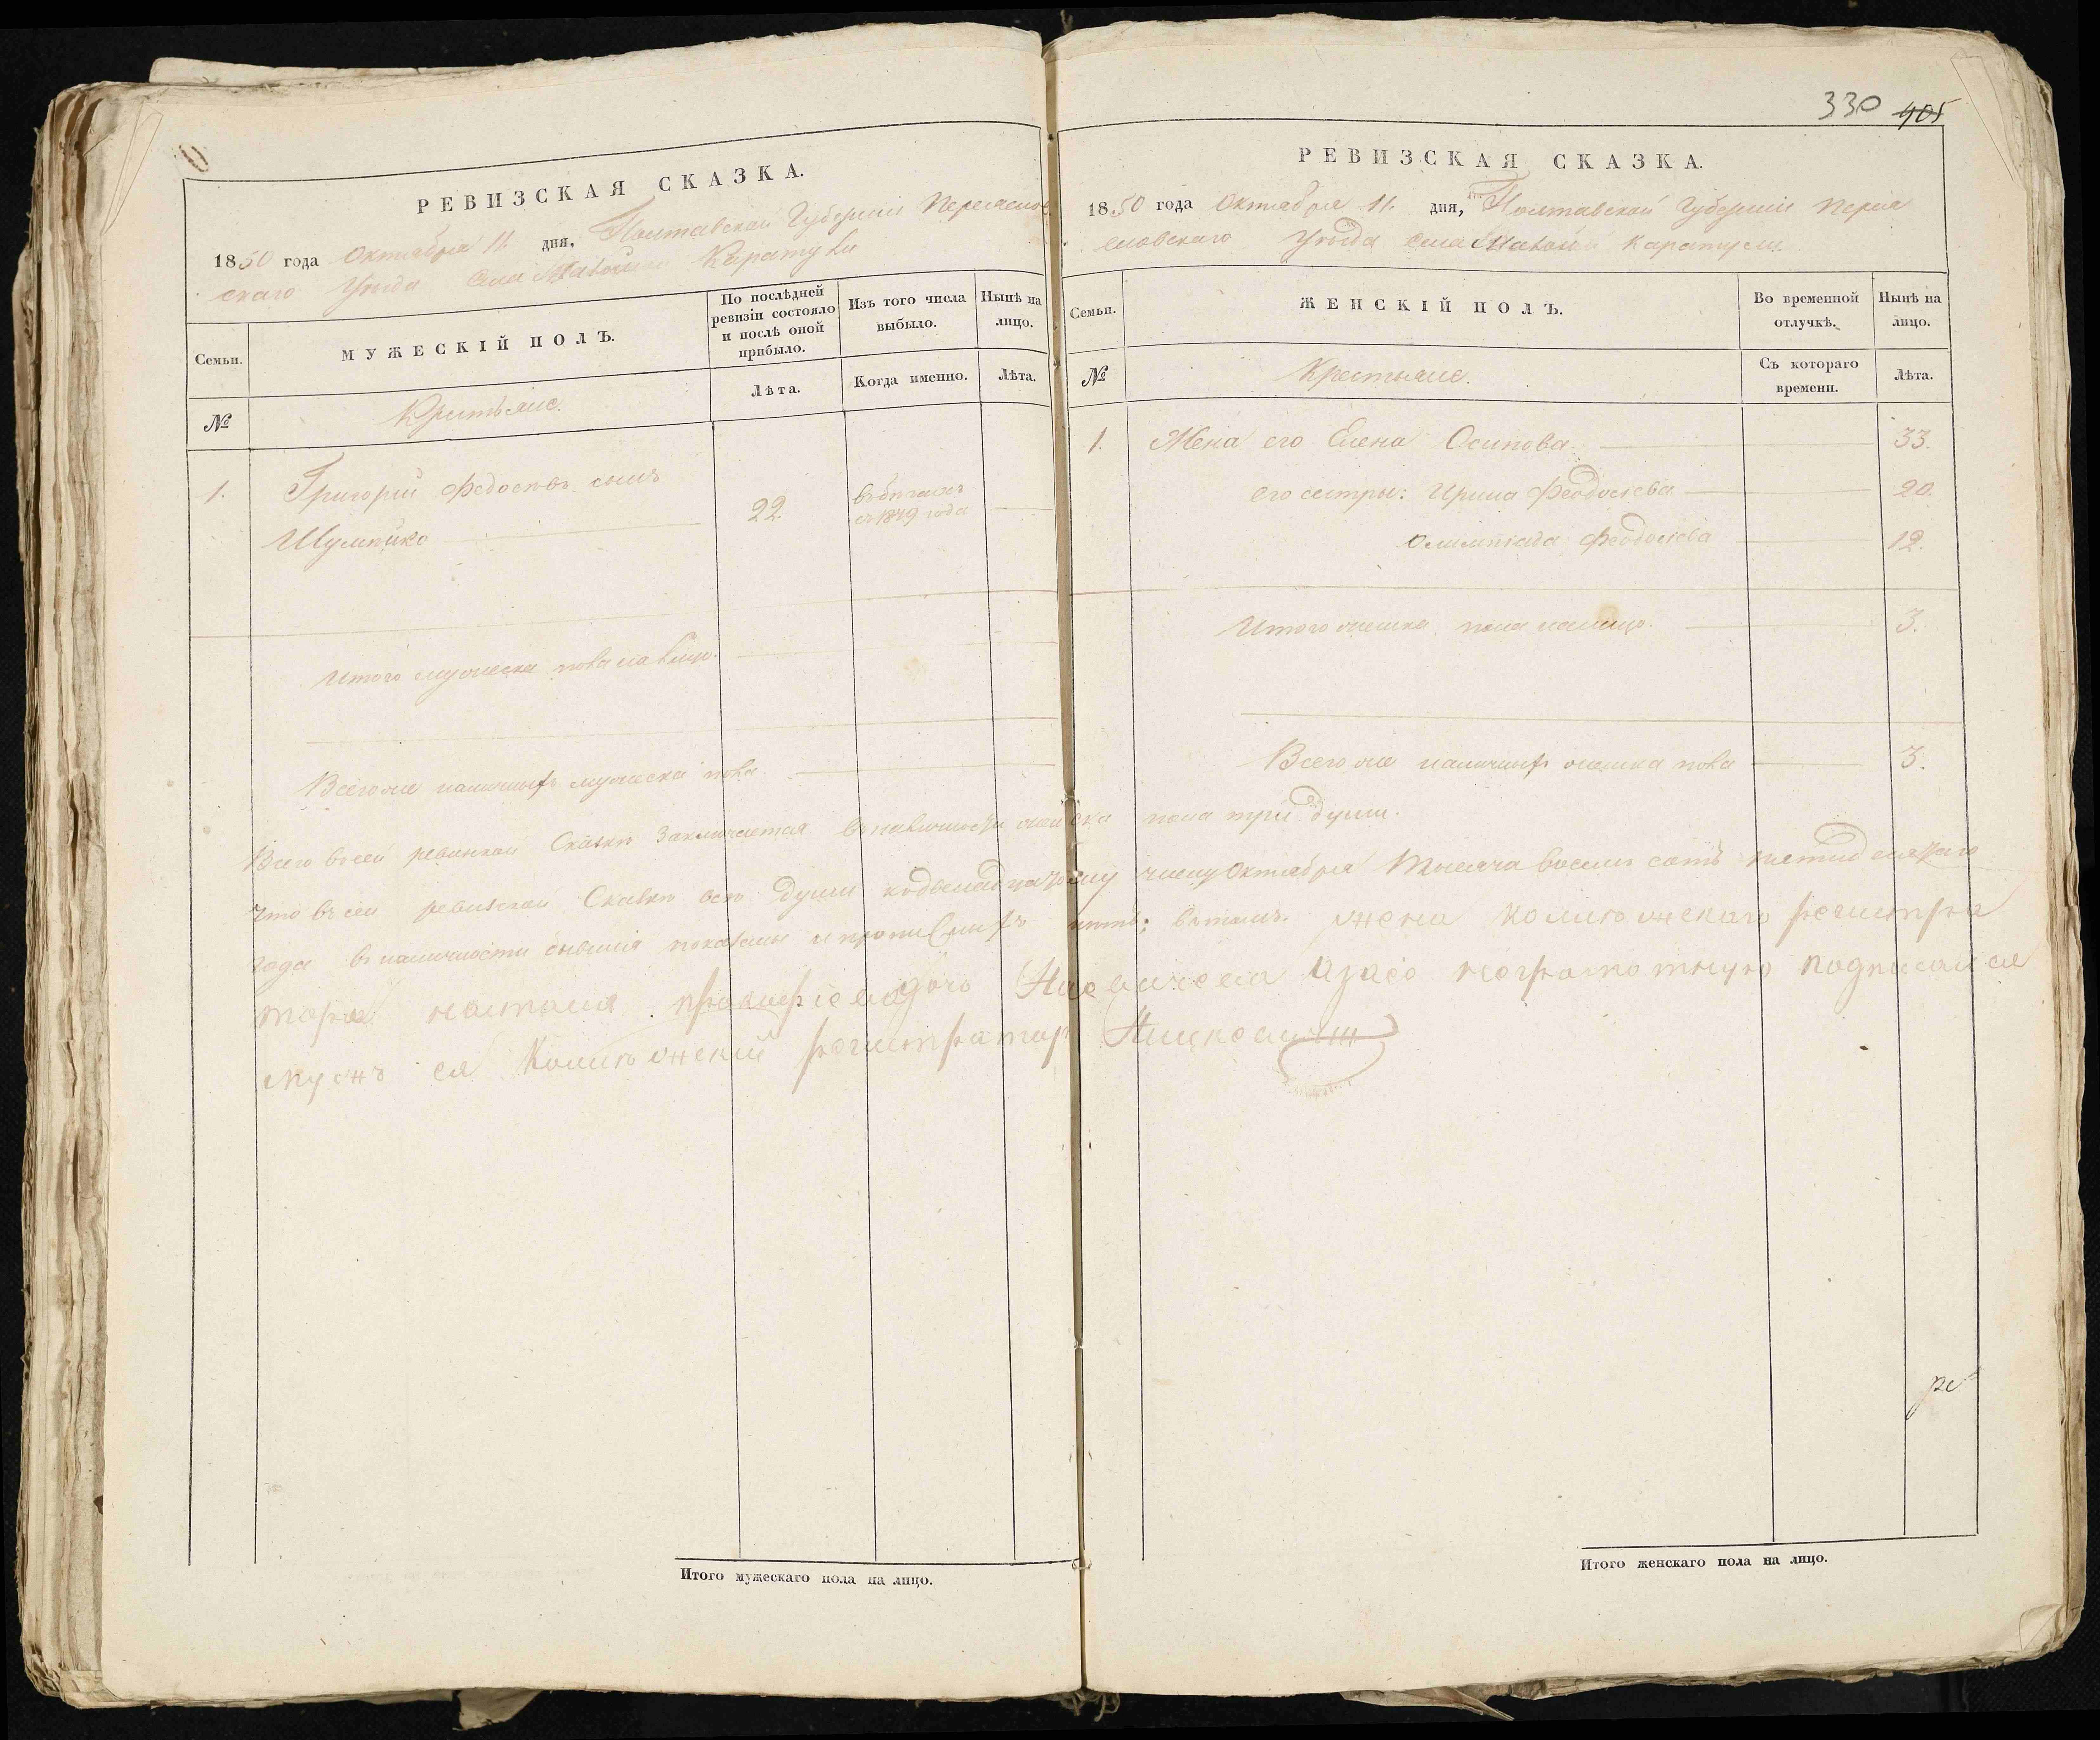 РЕВИЗСКАЯ СКАЗКА.
1850 года Октября 11. дня, Полтавской Губернiи Переяслов
скаго Уѣзда Села Малой Каратули
Семьи.
МУЖЕСКIЙ ПОЛЪ.
По послѣдней
ревизiи состояло
и послѣ оной
прибыло.
Изъ того числа
выбыло.
Нынѣ на
лицо.
№
Крестьяне.
Лѣта.
Когда именно.
Лѣта.
1. Григорiй Федосѣевъ сынъ
Шулѣйко
22.
въ бѣгахъ
съ 1849 года
Итого мужеска пола на лицо.
Всего же наличныхъ мужеска пола
330 405
РЕВИЗСКАЯ СКАЗКА.
1850 года Октября 11. дня, Полтавской Губернiи Перея
словскаго Уѣзда Села Малой Каратули.
Семьи.
ЖЕНСКIЙ ПОЛЪ.
Во временной
отлучкѣ.
Нынѣ на
лицо.
№
Крестьяне.
Съ котораго
времени.
Лѣта.
1. Жена его Елена Осипова 33.
его сестры: Ирина Феодосiева 20.
Олимпiада Феодосiева 12.
Итого женска пола налицо. 3.
Всего же наличныхъ женска пола 3.
Всего въ сей ревизской Сказкѣ заключается въ наличности женска пола три души.
Что въ сей ревизской Сказкѣ всѣ души ко двенадцатому числу Октября тысяча восемь сотъ пятидесятаго
года въ наличности бывшiя показаны и прописныхъ нѣтъ; въ томъ жена колижскаго регистра
тора дочь а за её неграмотную подписался
мужъ ея Колижскiй регистраторъ
Итого мужескаго пола на лицо.
Итого женскаго пола на лицо.